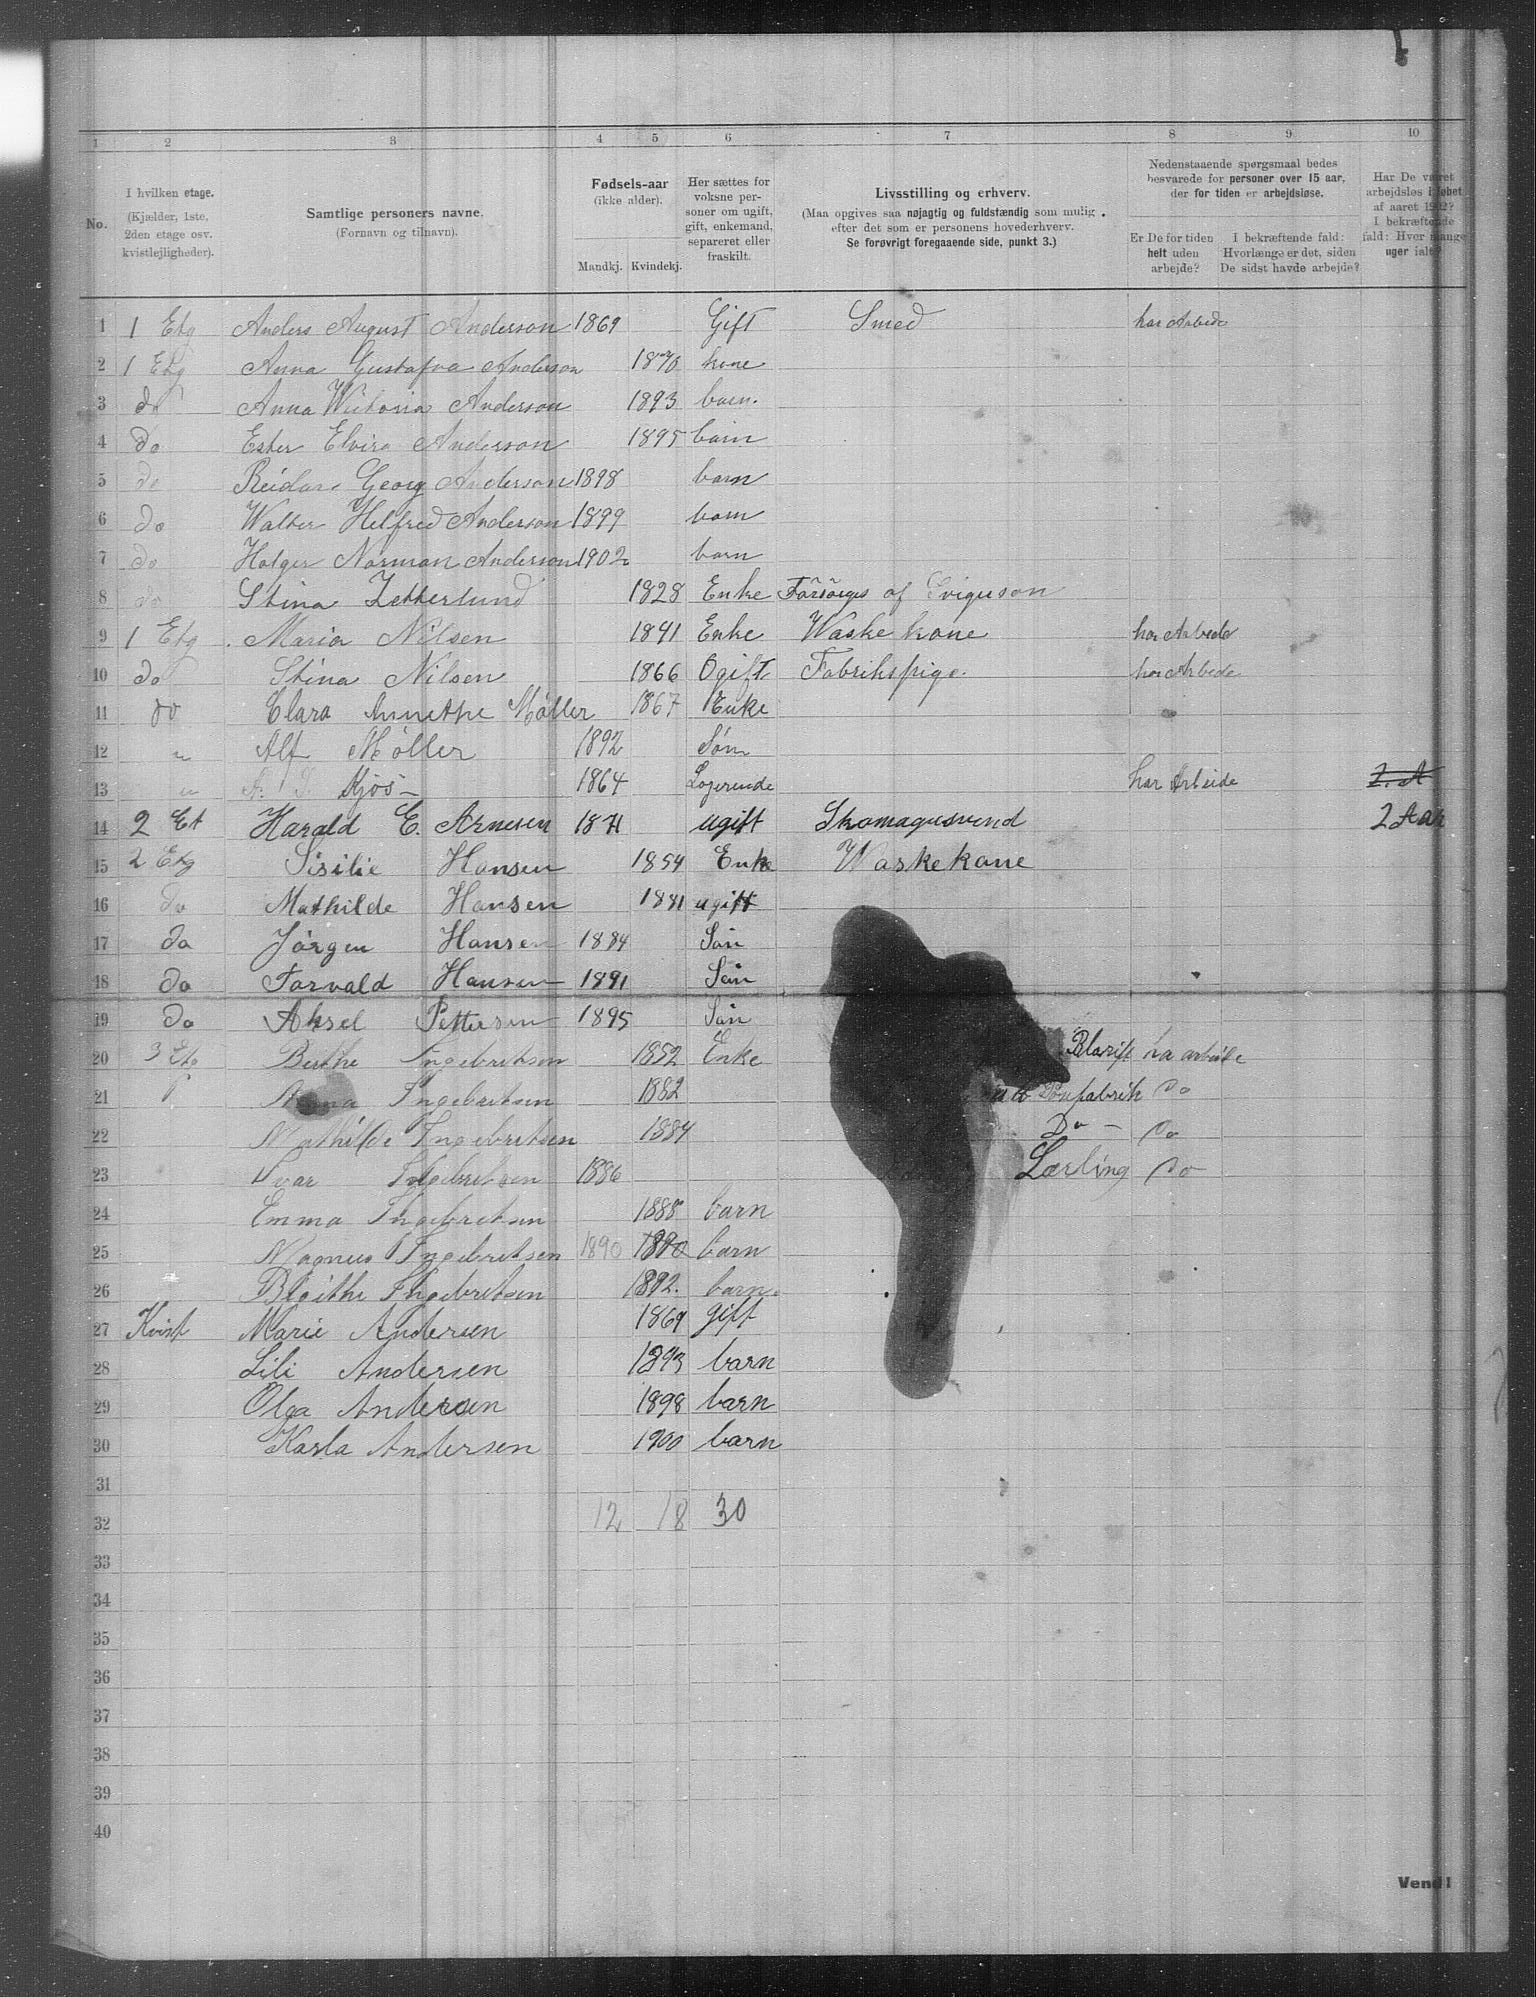 1 2 3 4 5 6 7 8 9 10
No.
I hvilken etage.
(Kjælder, 1ste,
2den etage osv.
kvistlejligheder).
Samtlige personers navne.
(Fornavn og tilnavn).
Fødsels-aar
(ikke alder).
Mandkj. Kvindekj.
Her sættes for
voksne per-
soner om ugift,
gift, enkemand,
separeret eller
fraskilt.
Livsstilling og erhverv.
(Maa opgives saa nøjagtig og fuldstændig som mulig
efter det som er personens hovederhverv.
Se forøvrigt foregaaende side, punkt 3.)
Nedenstaaende spørgsmaal bedes
besvarede for personer over 15 aar,
der for tiden er arbejdsløse.
Er De for tiden
helt uden
arbejde?
I bekræftende fald:
Hvorlænge er det, siden
De sidst havde arbejde?
Har De været
arbejdsløs i løbet
af aaret 1902?
I bekræftende
fald: Hvor mange
uger ialt?
1 1 Etg Anders August Anderson 1869 Gift Smed har Arbede
2 1 Etg Anna Gustafva Anderson 1870 kone
3 do Anna Wictoria Anderson 1893 barn.
4 do Ester Elvira Anderson 1895 barn
5 do Reidar Georg Anderson 1898 barn
6 do Walter Helfred Anderson 1899 barn
7 do Holger Norman Anderson 1902 barn
8 do Stina Zetterlund 1828 Enke Forsörges af
9 1 Etg Maria Nilsen 1841 Enke Waske kone har Arbede
10 do Stina Nilsen 1866 Ogift Fabrikspige har Arbede
11 do Clara Annethe Møller 1867 Enke
12 " Alf Møller 1892 Søn
13 " Kjøs 1864 Logerende har Arbeide 2. A
14 2 Et Harald E. Arnesen 1871 ugift Skomagersvend 2 Aar
15 2 Etg Sisilie Hansen 1854 Enke Waskekone
16 do Mathilde Hansen 1881 ugift
17 do Jørgen Hansen 1884 Søn
18 do Torvald Hansen 1891 Søn
19 do Aksel Pettersen 1895 Søn
20 3 Etg Berthe Ingebretsen 1852 Enke ha arbeide
21 Anna Ingebretsen 1882 Do
22 Mathilde Ingebretsen 1884 Do - Do
23 Ivar Ingebretsen 1886 Lærling Do
24 Emma Ingebretsen 1888 barn
25 Magnus Ingebretsen 1890 1890 barn
26 Ingebretsen 1892. barn
27 Kvist Marie Andersen 1869 gift
28 Lili Andersen 1893 barn
29 Olga Andersen 1898 barn
30 Karla Andersen 1900 barn
31
32 12 18 30
33
34
35
36
37
38
39
40
Vend!